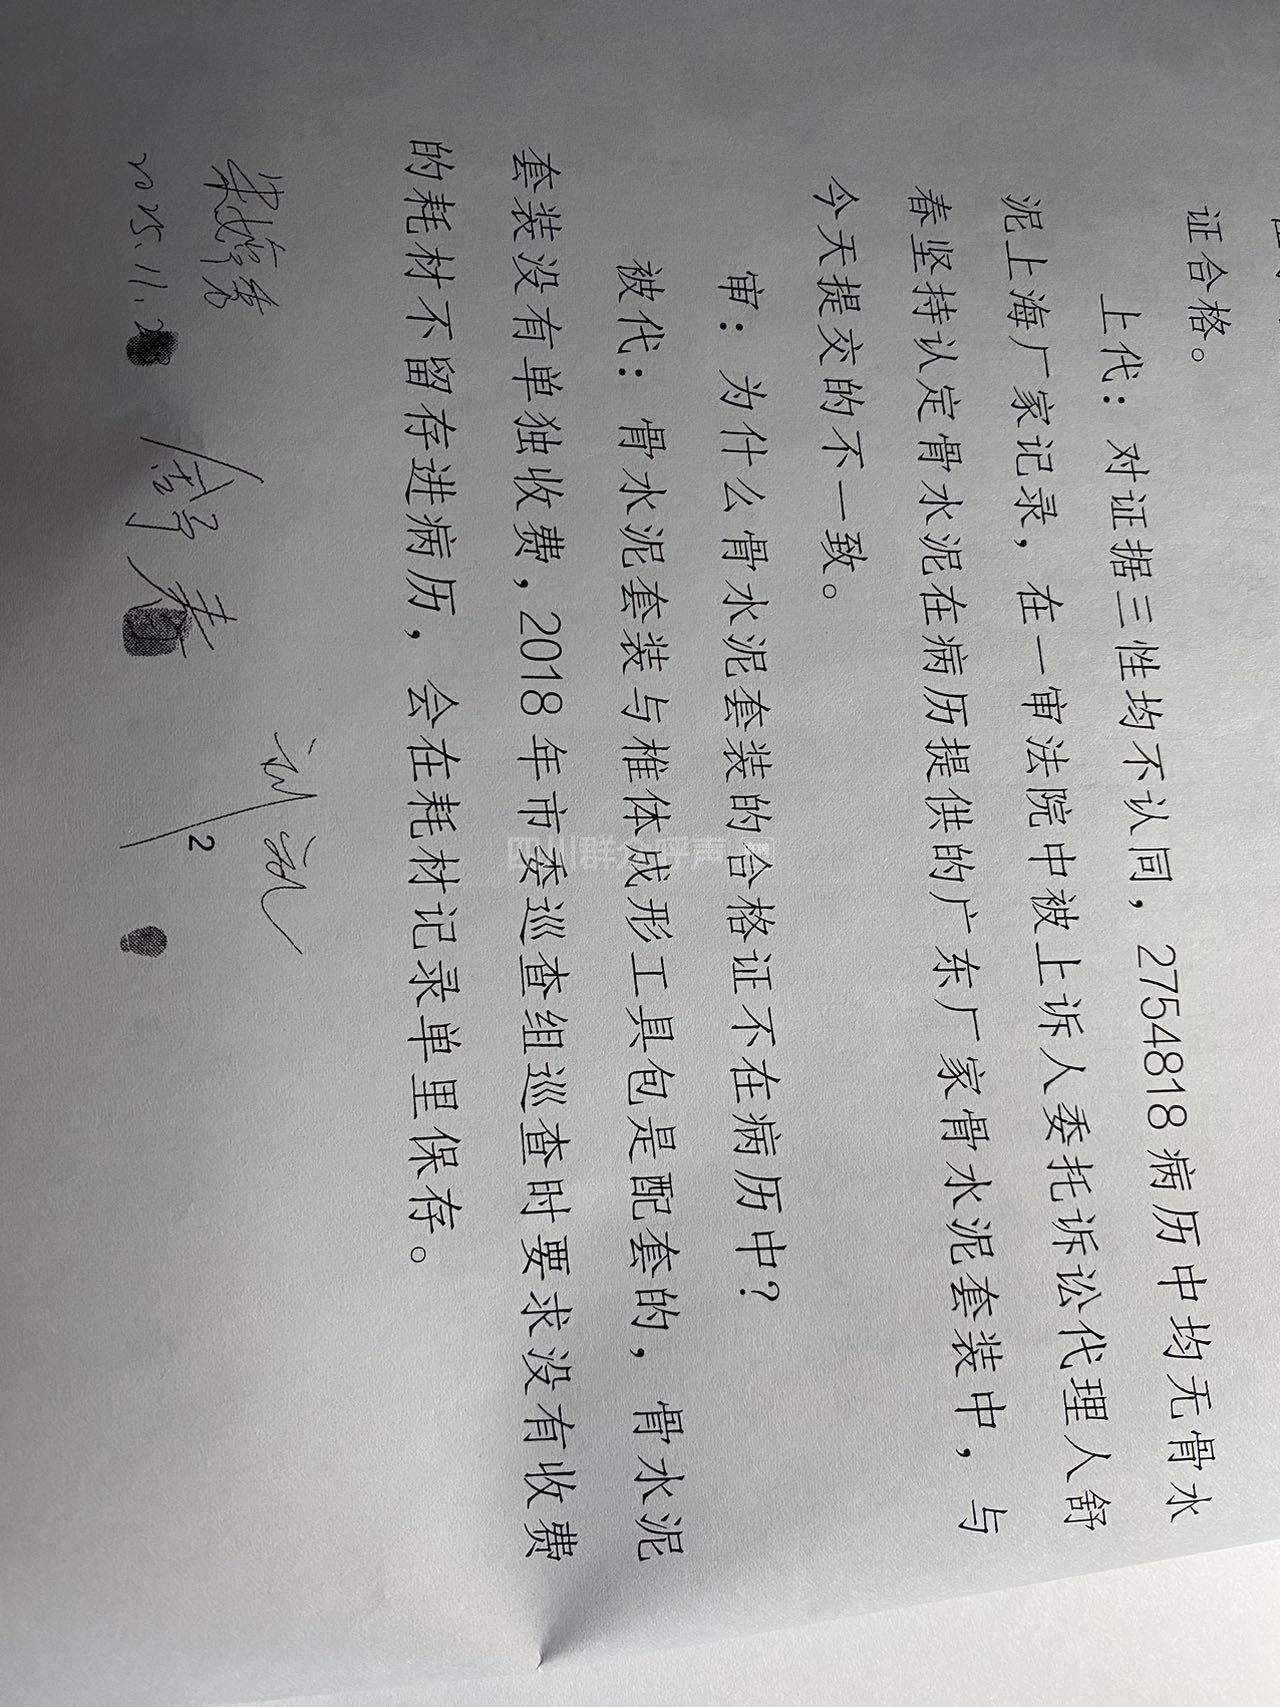 证合格。
上代：对证据三性均不认同，2754818病历中均无骨水
泥上海厂家记录，在一审法院中被上诉人委托诉讼代理人舒
春坚持认定骨水泥在病历提供的广东厂家骨水泥套装中，与
今天提交的不一致。
审：为什么骨水泥套装的合格证不在病历中？
被代：骨水泥套装与椎体成形工具包是配套的，骨水泥
套装没有单独收费，2018年市委巡查组巡查时要求没有收费
的耗材不留存进病历，会在耗材记录单里保存。
2025.11.
舒春
2
四川群众呼声